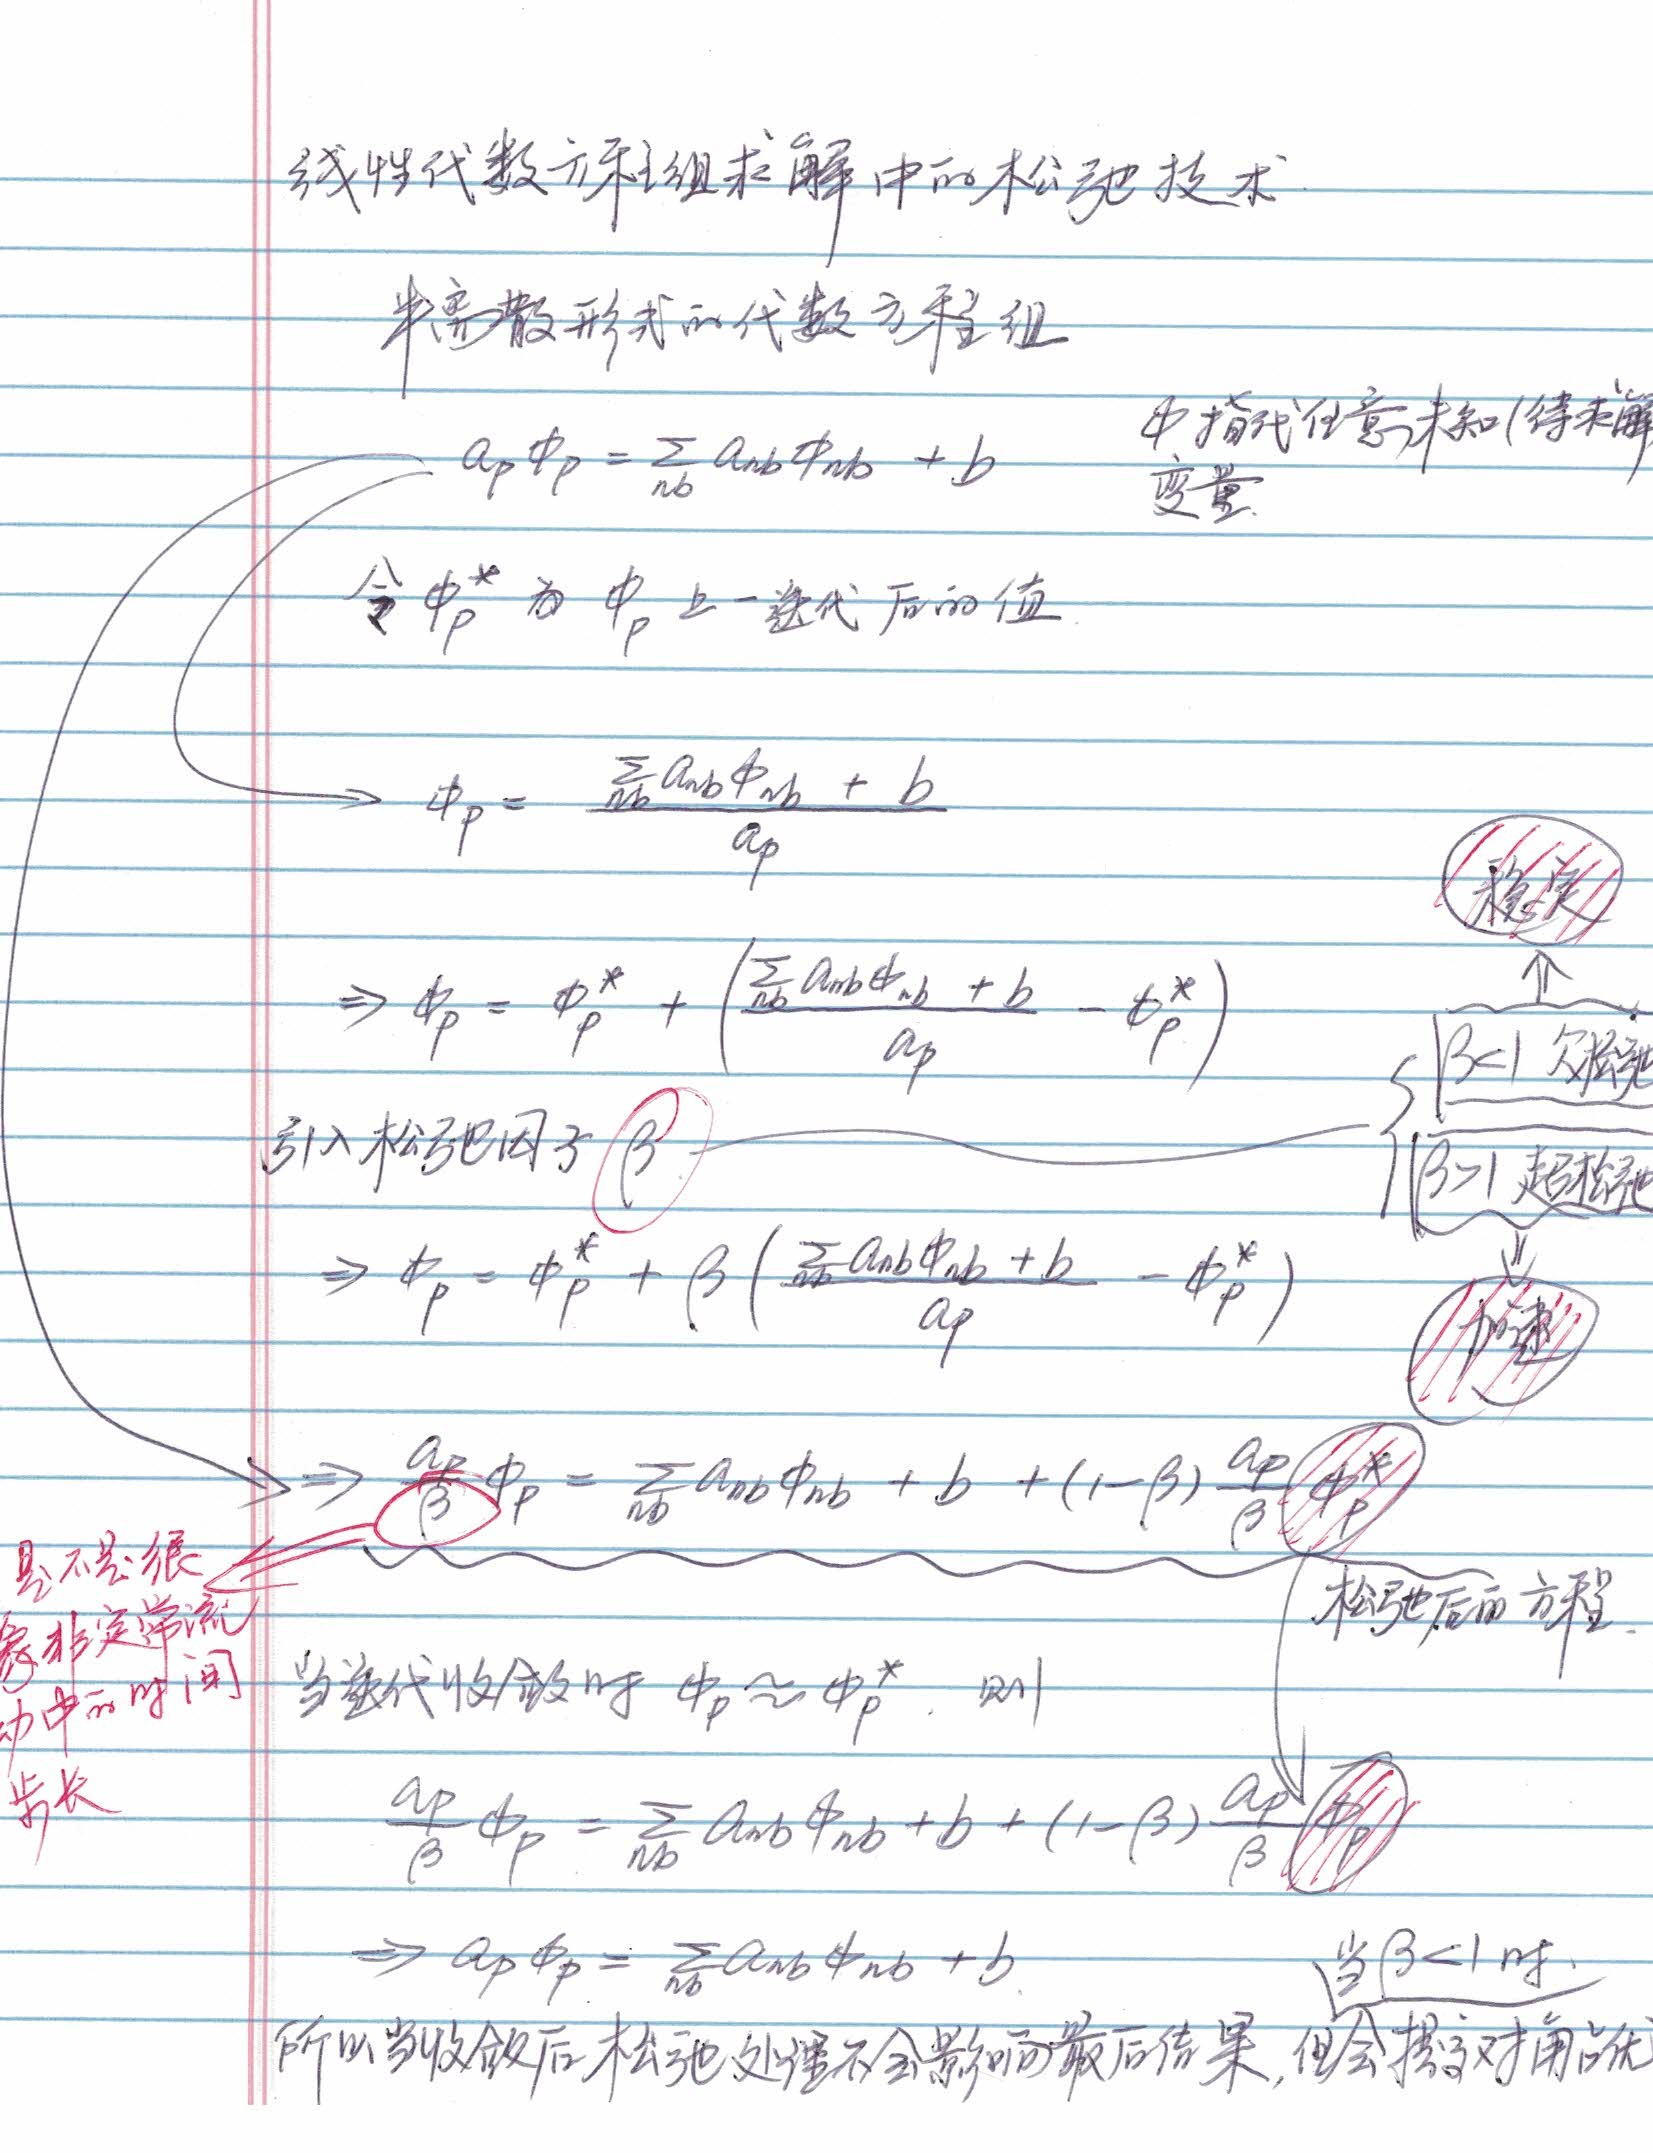 线性代数方程组求解中的松弛技术
半离散形式的代数方程组
a_p φ_p = Σ_nb a_nb φ_nb + b
φ指代任意未知(待求解
变量.
令 φ_p^* 为 φ_p 上一迭代后的值.
φ_p = (Σ_nb a_nb φ_nb + b) / a_p
稳定
⇒ φ_p = φ_p^* + ( (Σ_nb a_nb φ_nb + b) / a_p − φ_p^* )
β<1 欠松弛
引入松弛因子 β
β>1 超松弛
⇒ φ_p = φ_p^* + β ( (Σ_nb a_nb φ_nb + b) / a_p − φ_p^* )
加速
⇒ (a_p/β) φ_p = Σ_nb a_nb φ_nb + b + (1−β) (a_p/β) φ_p^*
是不是很
象非定常流
动中的时间
步长
松弛后的方程.
当迭代收敛时 φ_p ≈ φ_p^*. 则
(a_p/β) φ_p = Σ_nb a_nb φ_nb + b + (1−β) (a_p/β) φ_p
⇒ a_p φ_p = Σ_nb a_nb φ_nb + b.
当 β<1 时.
所以当收敛后松弛处理不会影响最后结果, 但会提高对角占优